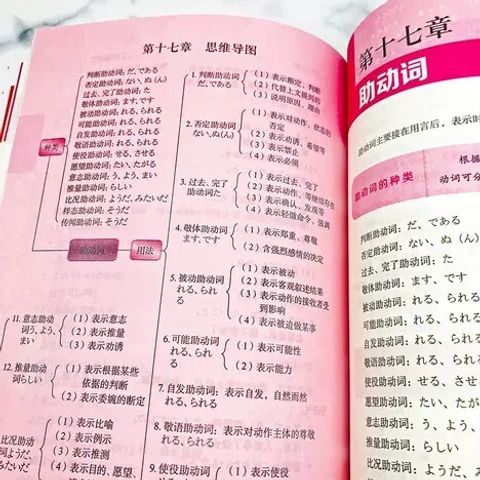 第十七章 思维导图
种类
判断助动词：だ、である
否定助动词：ない、ぬ（ん）
过去、完了助动词：た
敬体助动词：ます、です
被动助动词：れる、られる
可能助动词：れる、られる
自发助动词：れる、られる
敬语助动词：れる、られる
使役助动词：せる、させる
愿望助动词：たい、たがる
意志助动词：う、よう、まい
推量助动词：らしい
比况助动词：ようだ、みたいだ
样态助动词：そうだ
传闻助动词：そうだ
助动词
用法
1. 判断助动词
だ、である
（1）表示断定、判断
（2）代替上文提到的
（3）说明原因、理由
2. 否定助动词
ない、ぬ（ん）
（1）表示对动作、状态的
否定
（2）表示劝诱、希望等
（3）表示禁止
（4）表示必须
3. 过去、完了
助动词た
（1）表示过去、完了
（2）表示动作、等继续存在
（3）表示确认、发现等
（4）表示轻微命令、强调
4. 敬体助动词
ます、です
（1）表示郑重、尊敬
（2）含强烈感情的决定
5. 被动助动词
れる、られ
る
（1）表示被动
（2）表示客观叙述结果
（3）表示动作的接收者受
到影响
（4）表示被迫做某事
6. 可能助动词
れる、られ
る
（1）表示可能性
（2）表示能力
7. 自发助动词：表示自发，自然而然
れる、られる
8. 敬语助动词：表示对动作主体的尊敬
れる、られる
9. 使役助动词
（1）表示使役
11. 意志助动
词う、よう、
まい
（1）表示意志
（2）表示推量
（3）表示劝诱
12. 推量助动
词らしい
（1）表示根据某些
依据的判断
（2）表示委婉的断定
比况助动
ようだ、
るたいだ
（1）表示比喻
（2）表示例示
（3）表示推测
（4）表示目的、愿望、
第十七章
助动词
助动词主要接在用言后，表示时
根据
动词可分
助动词的种类
判断助动词：だ、である
否定助动词：ない、ぬ（ん）
过去、完了助动词：た
敬体助动词：ます、です
被动助动词：れる、られる
可能助动词：れる、られる
自发助动词：れる、られる
敬语助动词：れる、られる
使役助动词：せる、させ
愿望助动词：たい、たが
意志助动词：う、よう、
推量助动词：らしい
比况助动词：ようだ、み